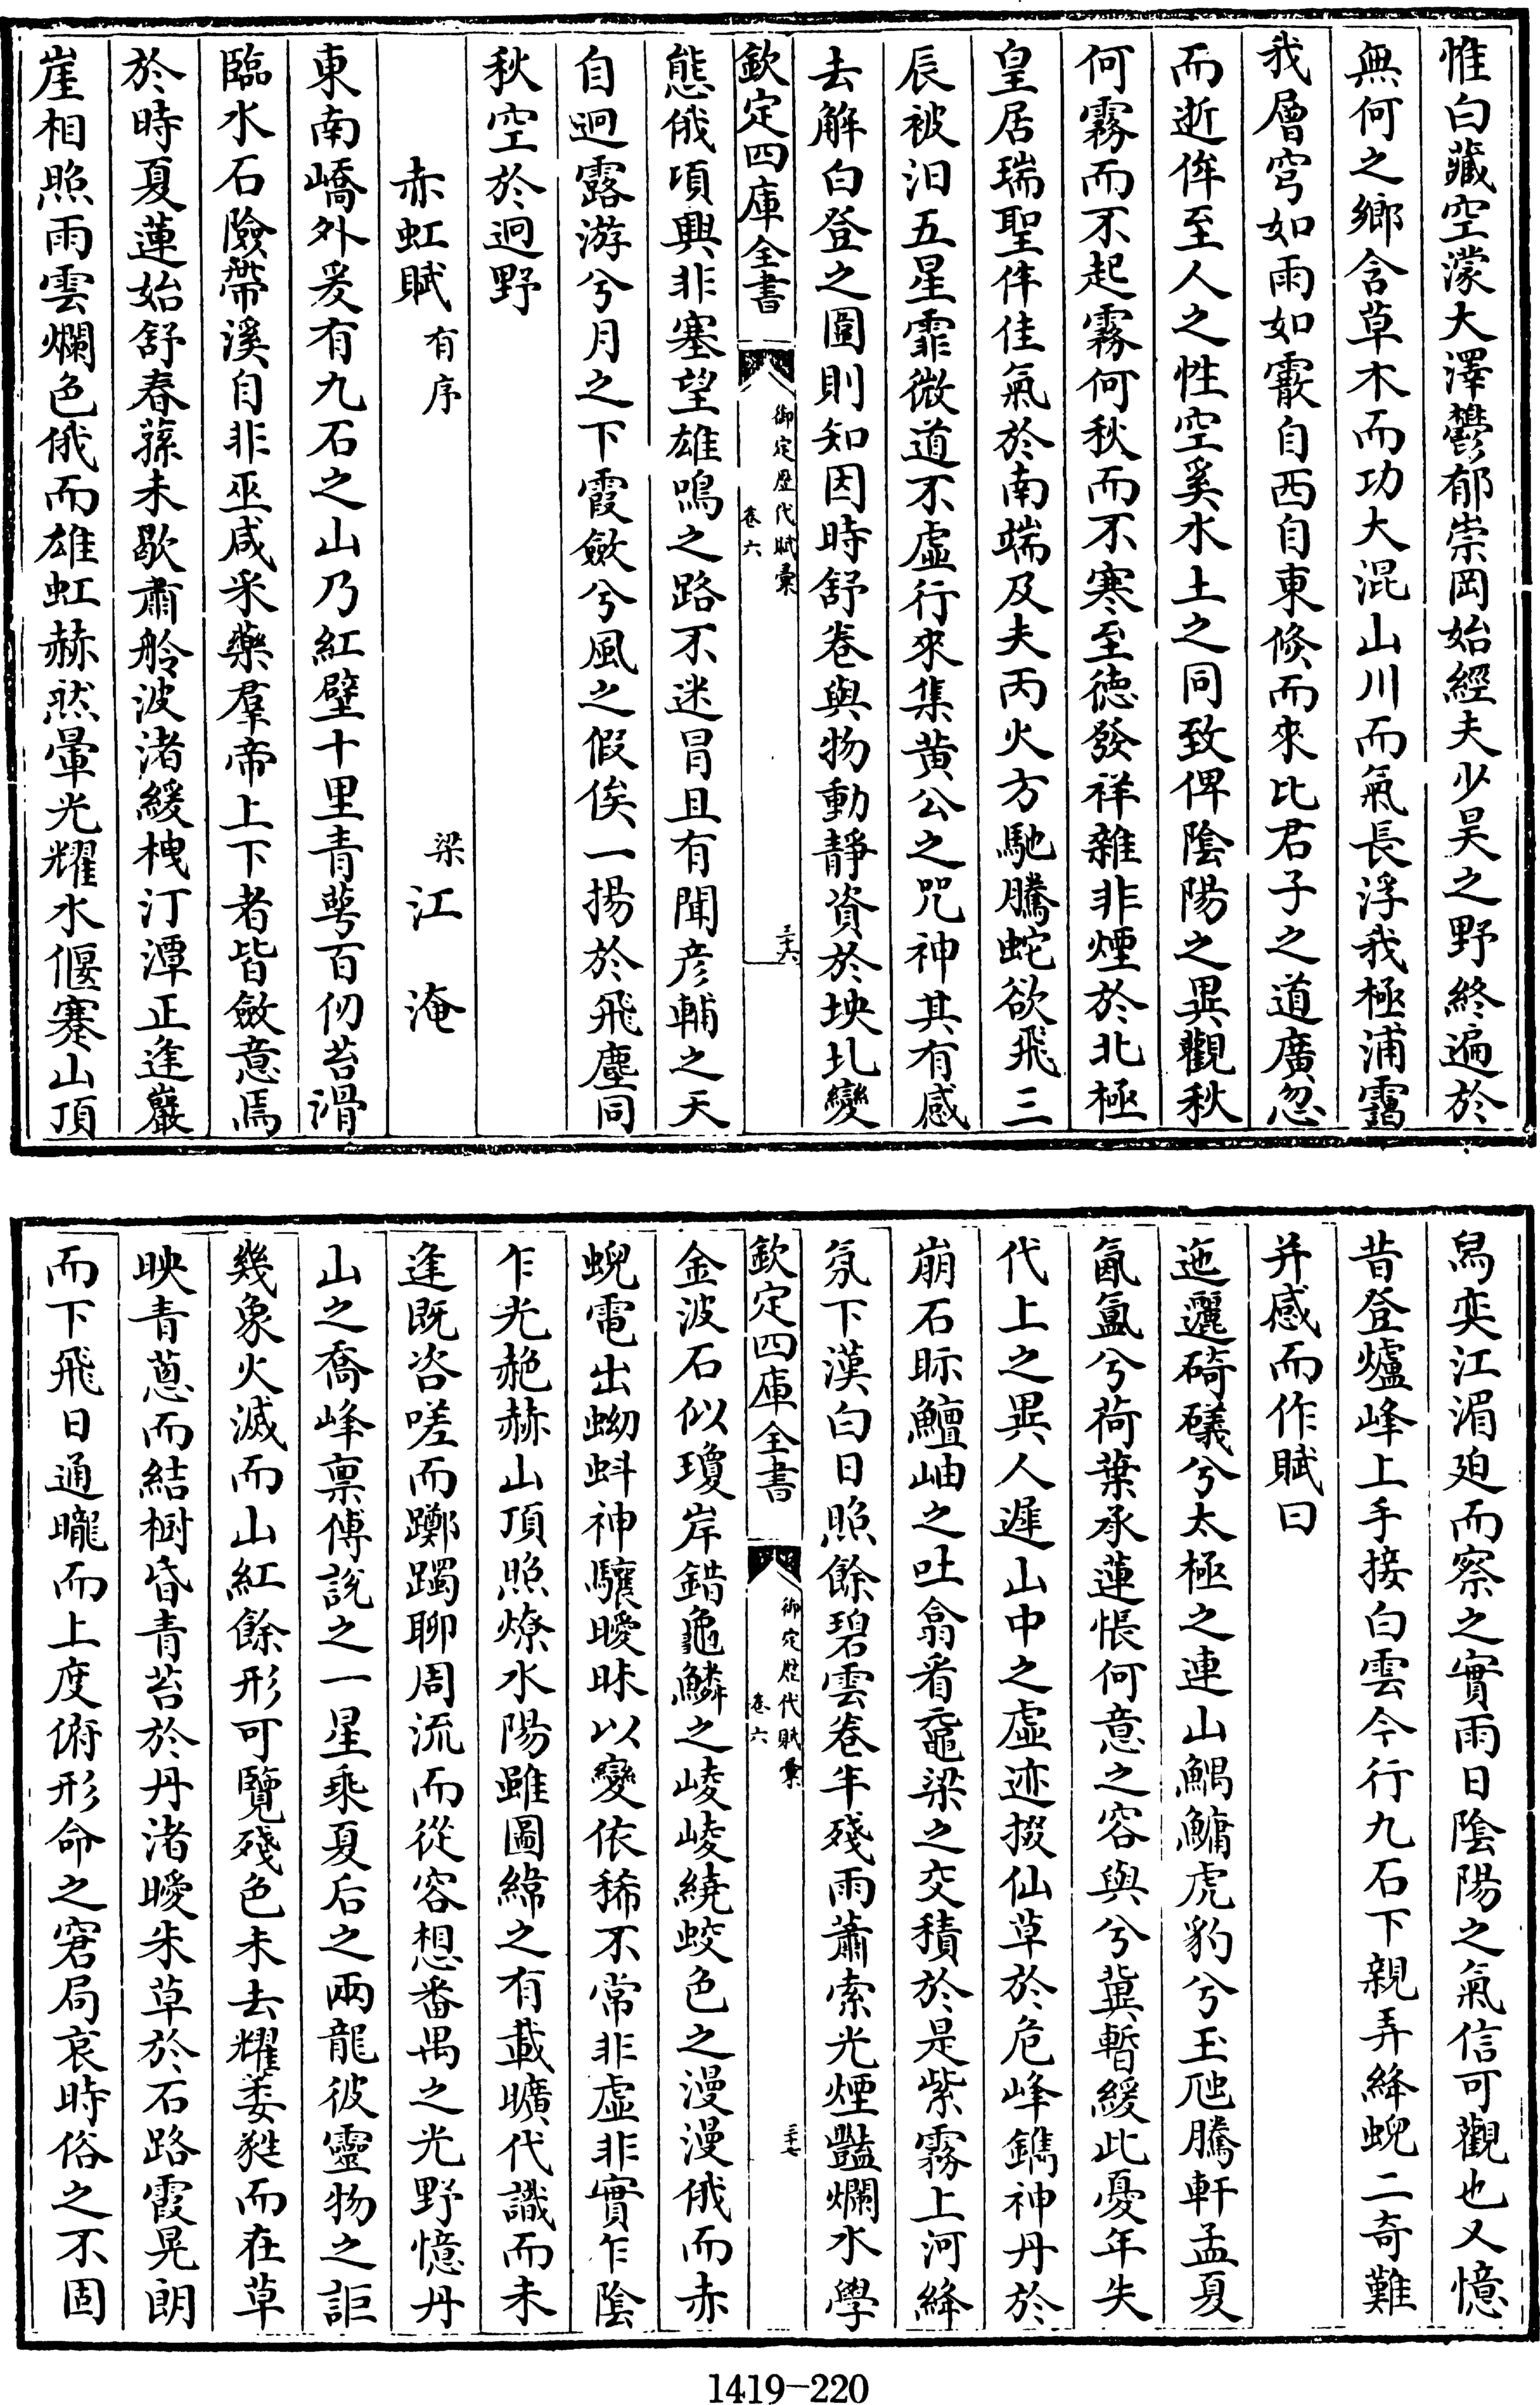 惟白藏空濛大澤鬱郁崇岡始經夫少昊之野終遍於
無何之鄉含草木而功大混山川而氣長浮我極浦靄
我層穹如雨如霰自西自東倏而來比君子之道廣忽
而逝侔至人之性空奚水土之同致俾陰陽之異觀秋
何霧而不起霧何秋而不寒至徳發祥雜非煙於北極
皇居瑞聖侔佳氣於南端及夫丙火方馳騰蛇欲飛三
辰被汨五星霏微道不虛行來集黄公之咒神其有感
去解白登之圖則知因時舒卷與物動靜資於坱圠變
欽定四庫全書
御定歴代賦彙
卷六
三六
態俄項興非塞望雄鳴之路不迷冒且有聞彦輔之天
自迥露游兮月之下霞斂兮風之假俟一揚於飛塵同
秋空於迥野
赤虹賦有序
梁江淹
東南嶠外爰有九石之山乃紅壁十里青蕚百仞苔滑
臨水石險帶溪自非巫咸采藥羣帝上下者皆斂意焉
於時夏蓮始舒春蓀未歇肅舲波渚緩栧汀潭正逢巖
崖相照雨雲爛色俄而雄虹赫然暈光耀水偃蹇山頂
舄奕江湄廹而察之實雨日隂陽之氣信可觀也又憶
昔登爐峰上手接白雲今行九石下親弄絳蜺二竒難
并感而作賦曰
迤𨘻碕礒兮太極之連山鰅鱅虎豹兮玉虺騰軒孟夏
氤氲兮荷葉承蓮悵何意之容與兮冀暫緩此憂年失
代上之異人遲山中之虛迹掇仙草於危峰鐫神丹於
崩石眎鱣岫之吐翕看黿梁之交積於是紫霧上河絳
氛下漢白日照餘碧雲卷半殘雨蕭索光煙豔爛水學
欽定四庫全書
御定歴代賦彙
卷六
三七
金波石似瓊岸錯龜鱗之崚崚繞蛟色之漫漫俄而赤
蜺電出蚴蚪神驤曖昧以變依稀不常非虚非實乍陰
乍光赩赫山頂照燎水陽雖圖緯之有載曠代識而未
逢既咨嗟而躑躅聊周流而從容想番禺之光野憶丹
山之喬峰稟傅說之一星乘夏后之兩龍彼靈物之詎
幾象火滅而山紅餘形可覽殘色未去耀葳蕤而在草
映青蔥而結樹昏青苔於丹渚曖朱草於石路霞晃朗
而下飛日通曨而上度俯形命之窘局哀時俗之不固
1419-220